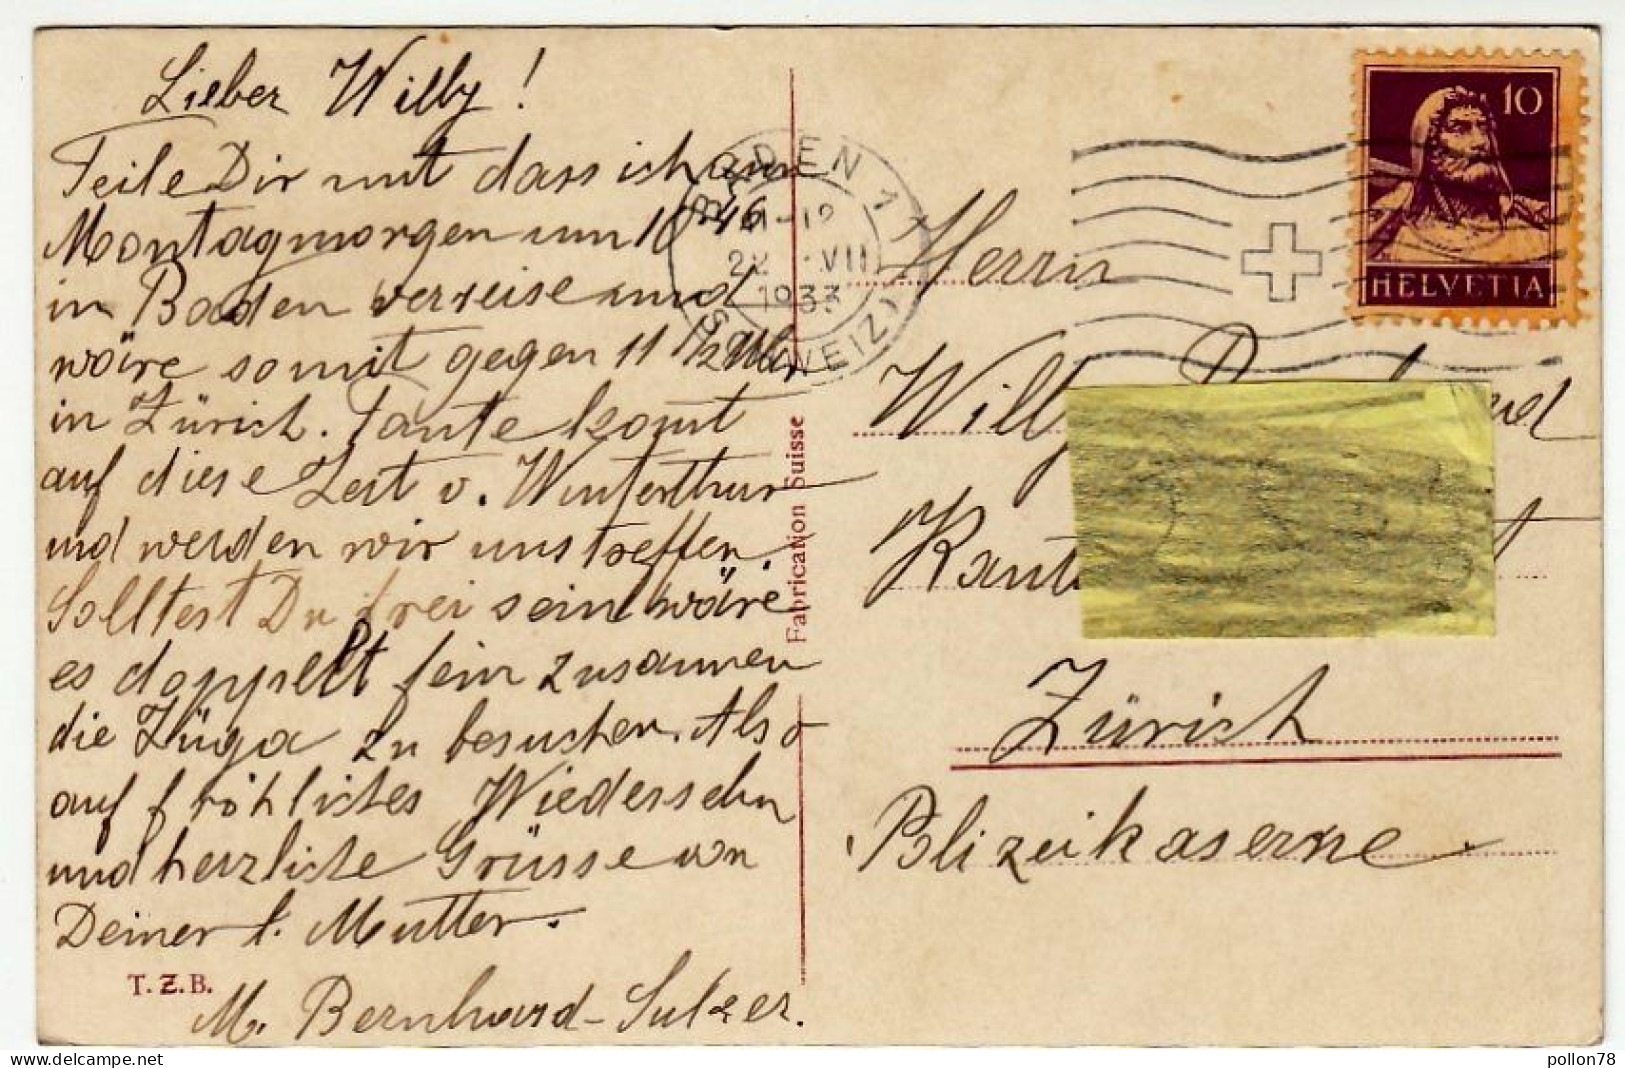 Lieber Willy!
Teile Dir mit dass ich am
Montagmorgen um 10 46
in Baden verreise und
wäre somit gegen 11 1/2 Uhr
in Zürich. Tante komt
auf diese Zeit v. Winterthur
und werden wir uns treffen.
Solltest Du frei sein wäre
es doppelt fein zusammen
die Züga zu besuchen. Also
auf fröhliches Wiedersehn
und herzliche Grüsse von
Deiner l. Mutter.
M. Bernhard-Sulzer.
T.Z.B.
Fabrication Suisse
BADEN 1
11-12
22. VII
1933
(SCHWEIZ)
10
HELVETIA
Herrn
Willy
Kant
Zürich
Polizeikaserne
delcampe.net
pollon78